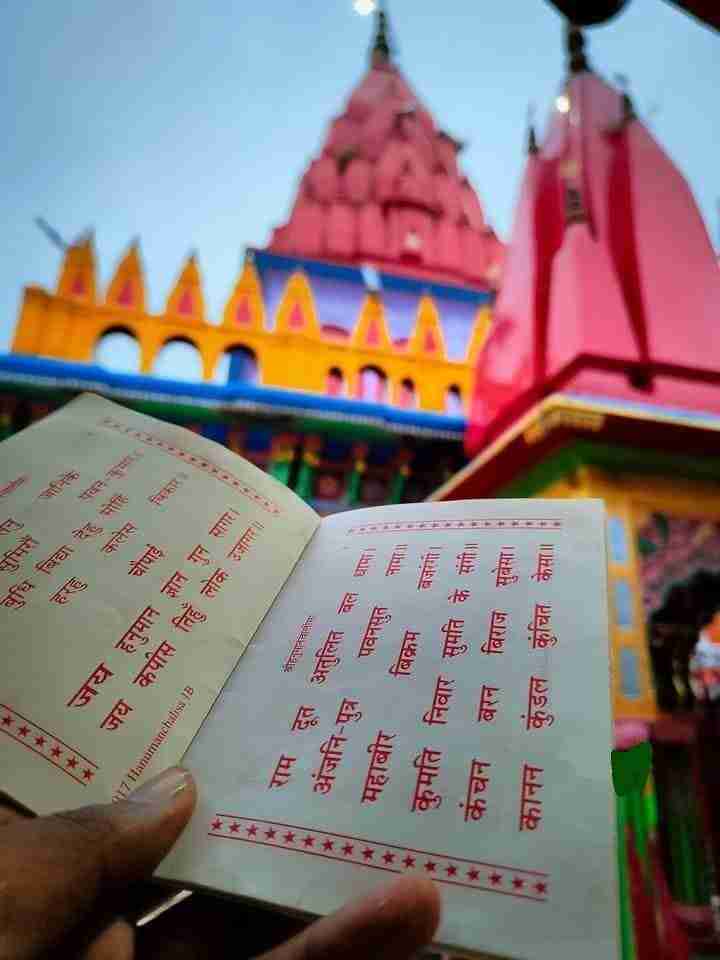 जानिके
सुमिरौं पवन-कुमार।
बुधि बिद्या देहु मोहिं
हरहु कलेस बिकार॥
चौपाई
जय हनुमान ज्ञान गुन सागर।
जय कपीस तिहुँ लोक उजागर॥
17 Hanumanchalisa 1B
श्रीहनुमानचालीसा
राम दूत अतुलित बल धामा।
अंजनि-पुत्र पवनसुत नामा॥
महाबीर बिक्रम बजरंगी।
कुमति निवार सुमति के संगी॥
कंचन बरन बिराज सुबेसा।
कानन कुंडल कुंचित केसा॥